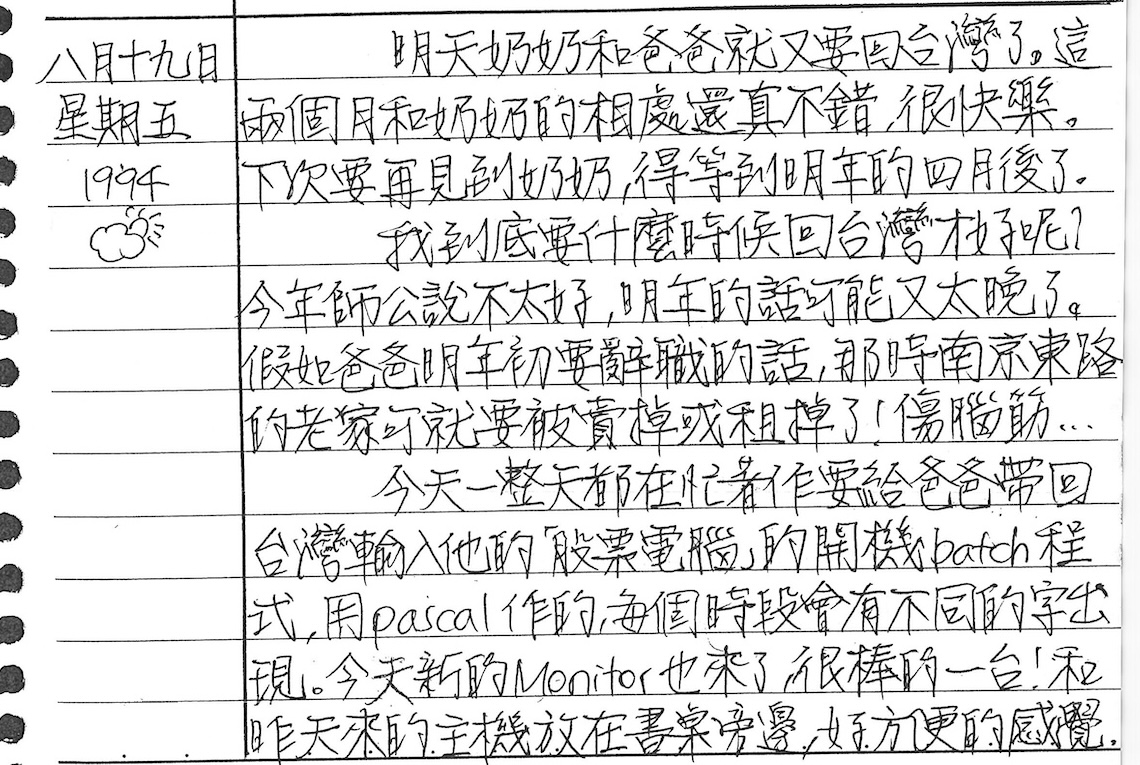 八月十九日
星期五
1994
明天奶奶和爸爸就又要回台灣了。這
兩個月和奶奶的相處還真不錯,很快樂。
下次要再見到奶奶,得等到明年的四月後了。
我到底要什麼時候回台灣才好呢?
今年師公說不太好,明年的話可能又太晚了。
假如爸爸明年初要辭職的話,那時南京東路
的老家可就要被賣掉或租掉了!傷腦筋...
今天一整天都在忙著作要給爸爸帶回
台灣輸入他的「股票電腦」的開機batch程
式,用pascal作的,每個時段會有不同的字出
現。今天新的Monitor也來了,很棒的一台!和
昨天來的主機放在書桌旁邊,好方便的感覺.